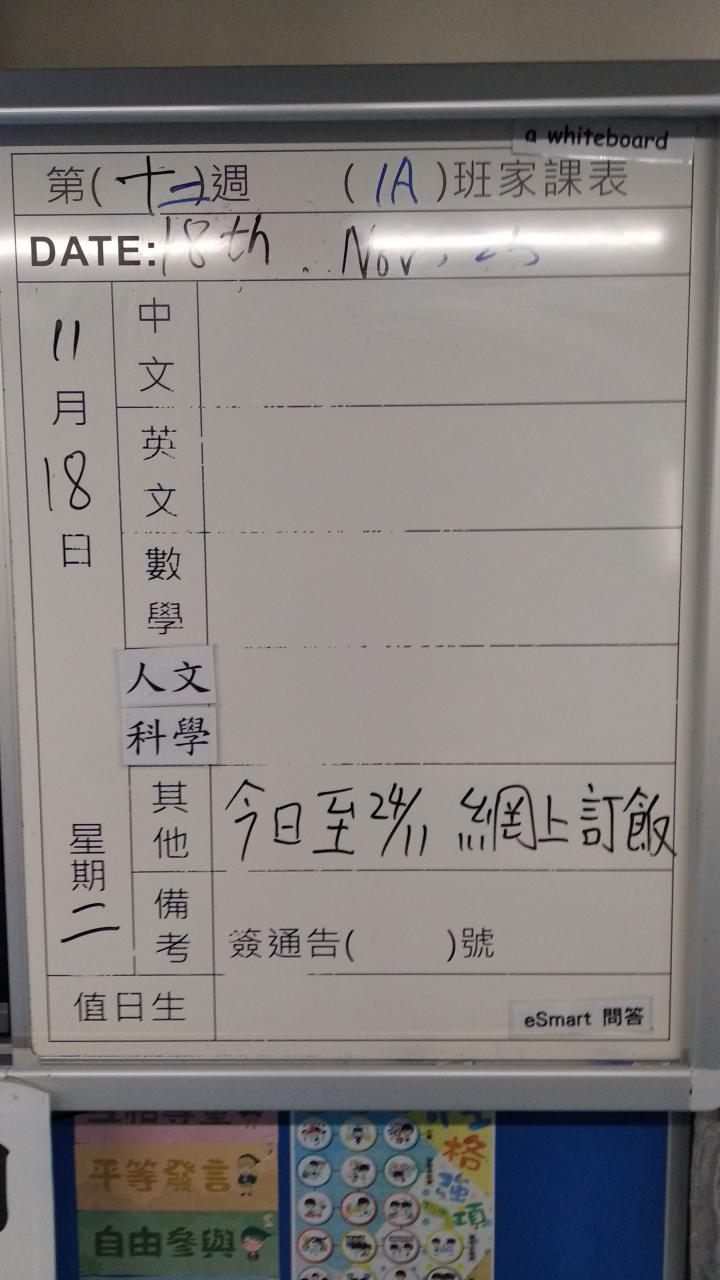 a whiteboard
第(十二)週 (1A)班家課表
DATE: 18th. Nov, 25
11月18日
星期二
中文
英文
數學
人文
科學
其他 今日至24/11 網上訂飯
備考 簽通告( )號
值日生
eSmart 問答
平等發言
自由參與
格
強
項